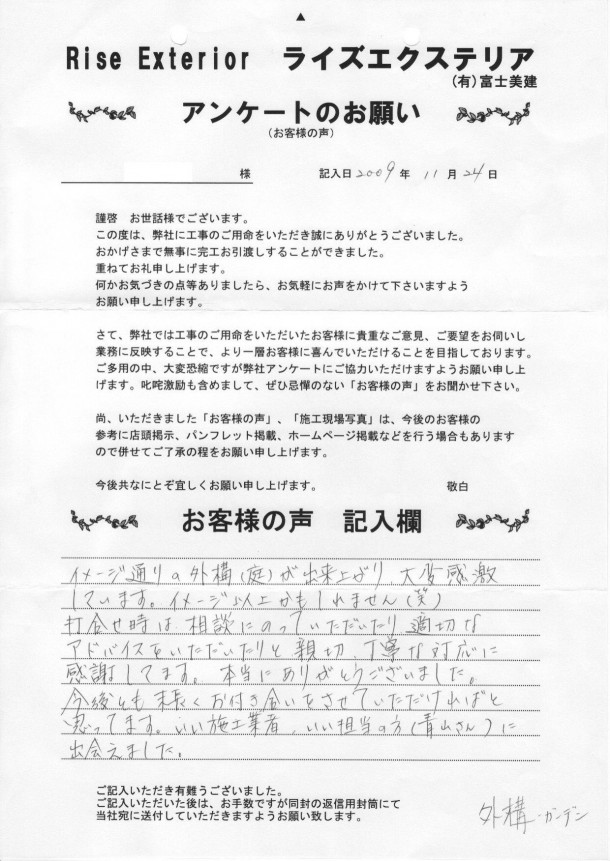 ▲
Rise Exterior ライズエクステリア
(有)富士美建
アンケートのお願い
(お客様の声)
様 記入日 2009 年 11 月 24 日
謹啓 お世話様でございます。
この度は、弊社に工事のご用命をいただき誠にありがとうございました。
おかげさまで無事に完工お引渡しすることができました。
重ねてお礼申し上げます。
何かお気づきの点等ありましたら、お気軽にお声をかけて下さいますよう
お願い申し上げます。
さて、弊社では工事のご用命をいただいたお客様に貴重なご意見、ご要望をお伺いし
業務に反映することで、より一層お客様に喜んでいただけることを目指しております。
ご多用の中、大変恐縮ですが弊社アンケートにご協力いただけますようお願い申し上
げます。叱咤激励も含めまして、ぜひ忌憚のない「お客様の声」をお聞かせ下さい。
尚、いただきました「お客様の声」、「施工現場写真」は、今後のお客様の
参考に店頭掲示、パンフレット掲載、ホームページ掲載などを行う場合もあります
ので併せてご了承の程をお願い申し上げます。
今後共なにとぞ宜しくお願い申し上げます。 敬白
お客様の声 記入欄
イメージ通りの外構(庭)が出来上がり、大変感激
しています。イメージ以上かもしれません(笑)
打合せ時は、相談にのっていただいたり 適切な
アドバイスをいただいたりと 親切、丁寧な対応に
感謝してます。本当にありがとうございました。
今後とも末長くお付き合いをさせていただければと
思ってます。いい施工業者、いい担当の方(青山さん)に
出会えました。
ご記入いただき有難うございました。
ご記入いただいた後は、お手数ですが同封の返信用封筒にて
当社宛に送付していただきますようお願い致します。
外構・ガーデン